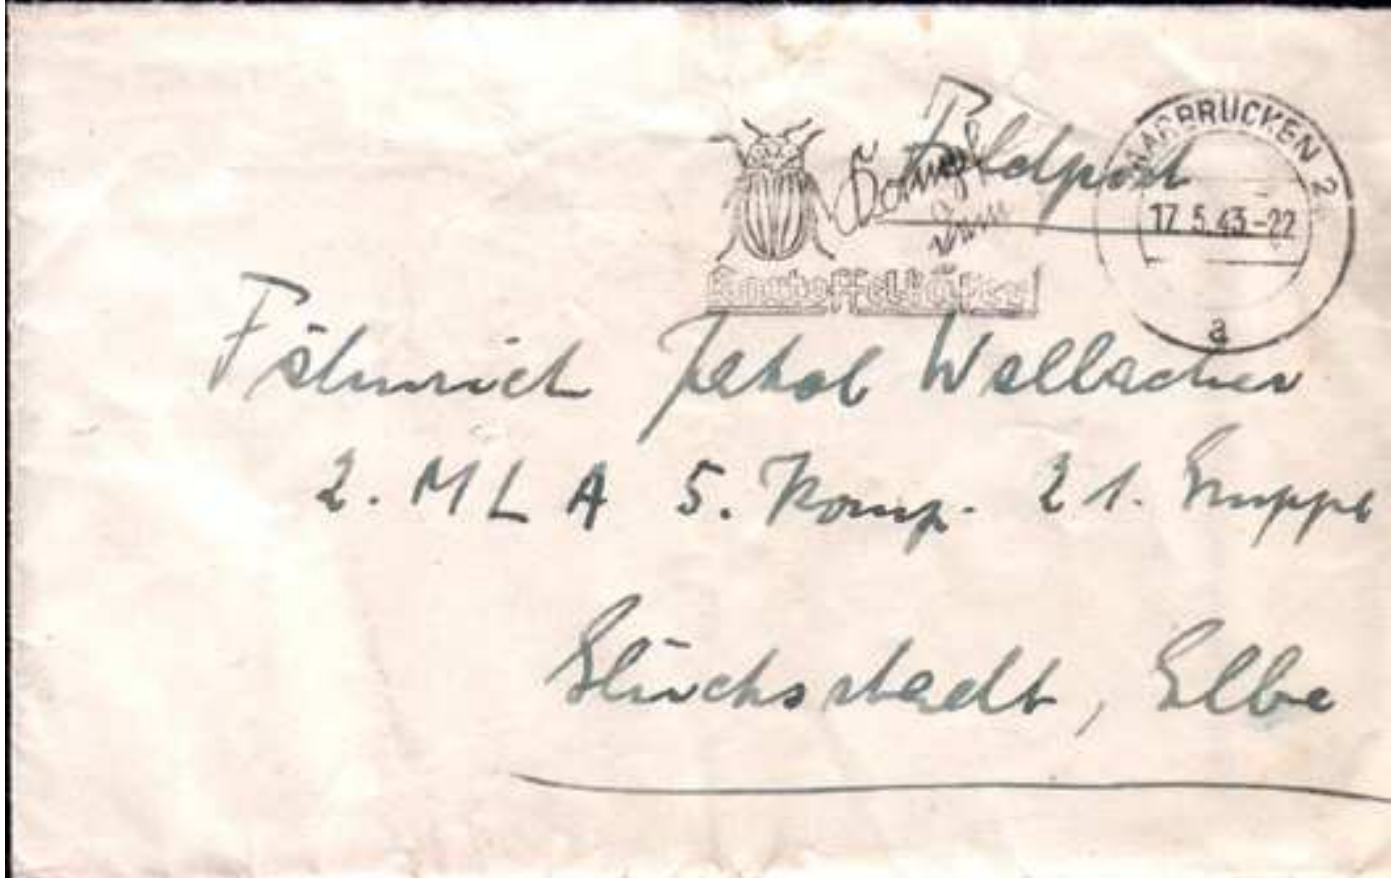 Feldpost
SAARBRÜCKEN 2
17.5.43.-22
a
Kartoffelkäfer!
Fähnrich Jakob Wallacher
2. MLA 5. Komp. 21. Gruppe
Glücksstadt, Elbe